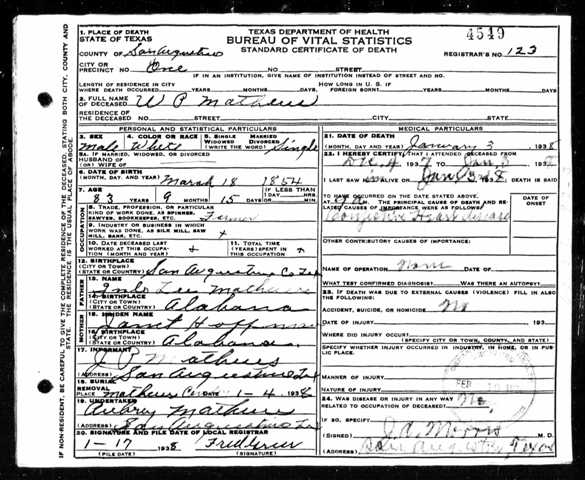 TEXAS DEPARTMENT OF HEALTH
BUREAU OF VITAL STATISTICS
STANDARD CERTIFICATE OF DEATH
4549
REGISTRAR'S NO. 123
1. PLACE OF DEATH
STATE OF TEXAS
COUNTY OF San Augustine
CITY OR
PRECINCT NO. One NO. STREET
IF IN AN INSTITUTION, GIVE NAME OF INSTITUTION INSTEAD OF STREET AND NO.
LENGTH OF RESIDENCE IN CITY
WHERE DEATH OCCURRED YEARS MONTHS DAYS
HOW LONG IN U.S. IF
FOREIGN BORN? YEARS MONTHS DAYS
2. FULL NAME
OF DECEASED W P Mathews
RESIDENCE OF
THE DECEASED NO. STREET CITY COUNTY AND STATE
PERSONAL AND STATISTICAL PARTICULARS
3. SEX 4. COLOR OR RACE 5. SINGLE MARRIED
WIDOWED DIVORCED
(WRITE THE WORD)
Male White Single
5A. IF MARRIED, WIDOWED, OR DIVORCED
HUSBAND OF
(OR) WIFE OF
6. DATE OF BIRTH
(MONTH, DAY, AND YEAR) March 18 1854
7. AGE YEARS MONTHS DAYS IF LESS THAN 1 DAY
83 9 15 HOURS MIN.
8. TRADE, PROFESSION, OR PARTICULAR
KIND OF WORK DONE, AS SPINNER,
SAWYER, BOOKKEEPER, ETC. Farmer
9. INDUSTRY OR BUSINESS IN WHICH
WORK WAS DONE, AS SILK MILL, SAW
MILL, BANK, ETC.
10. DATE DECEASED LAST
WORKED AT THIS OCCUPA-
TION (MONTH AND YEAR)
11. TOTAL TIME
(YEARS) SPENT IN
THIS OCCUPATION
12. BIRTHPLACE
(CITY OR TOWN)
(STATE OR COUNTRY) San Augustine Co Tex
FATHER
13. NAME Lee Mathews
14. BIRTHPLACE
(CITY OR TOWN)
(STATE OR COUNTRY) Alabama
MOTHER
15. MAIDEN NAME
16. BIRTHPLACE
(CITY OR TOWN)
(STATE OR COUNTRY) Alabama
17. INFORMANT Mathews
(ADDRESS) San Augustine Tex
18. BURIAL
REMOVAL
PLACE Mathews DATE 1-4 1938
19. UNDERTAKER
Aubrey Mathews
(ADDRESS) San Augustine Tx
20. SIGNATURE AND FILE DATE OF LOCAL REGISTRAR
1-17 1938
(FILE DATE) (SIGNATURE)
MEDICAL PARTICULARS
21. DATE OF DEATH
(MONTH, DAY, AND YEAR) January 3 1938
22. I HEREBY CERTIFY THAT I ATTENDED DECEASED FROM
Dec 4 1937 TO Jan 3 1938
I LAST SAW HIM ALIVE ON Jan 3 1938 DEATH IS SAID
TO HAVE OCCURRED ON THE DATE STATED ABOVE,
AT M. THE PRINCIPAL CAUSE OF DEATH AND RE-
LATED CAUSES OF IMPORTANCE WERE AS FOLLOWS:
DATE OF
ONSET
Congestive Heart disease
OTHER CONTRIBUTORY CAUSES OF IMPORTANCE:
NAME OF OPERATION None DATE OF
WHAT TEST CONFIRMED DIAGNOSIS? WAS THERE AN AUTOPSY?
23. IF DEATH WAS DUE TO EXTERNAL CAUSES (VIOLENCE) FILL IN ALSO
THE FOLLOWING:
ACCIDENT, SUICIDE, OR HOMICIDE? No
DATE OF INJURY 193
WHERE DID INJURY OCCUR?
(SPECIFY CITY OR TOWN, COUNTY, AND STATE)
SPECIFY WHETHER INJURY OCCURRED IN INDUSTRY, IN HOME, OR IN PUB-
LIC PLACE.
MANNER OF INJURY
NATURE OF INJURY
24. WAS DISEASE OR INJURY IN ANY WAY
RELATED TO OCCUPATION OF DECEASED? No
IF SO, SPECIFY
(SIGNED) M.D.
(ADDRESS) San Augustine, Texas
FEB